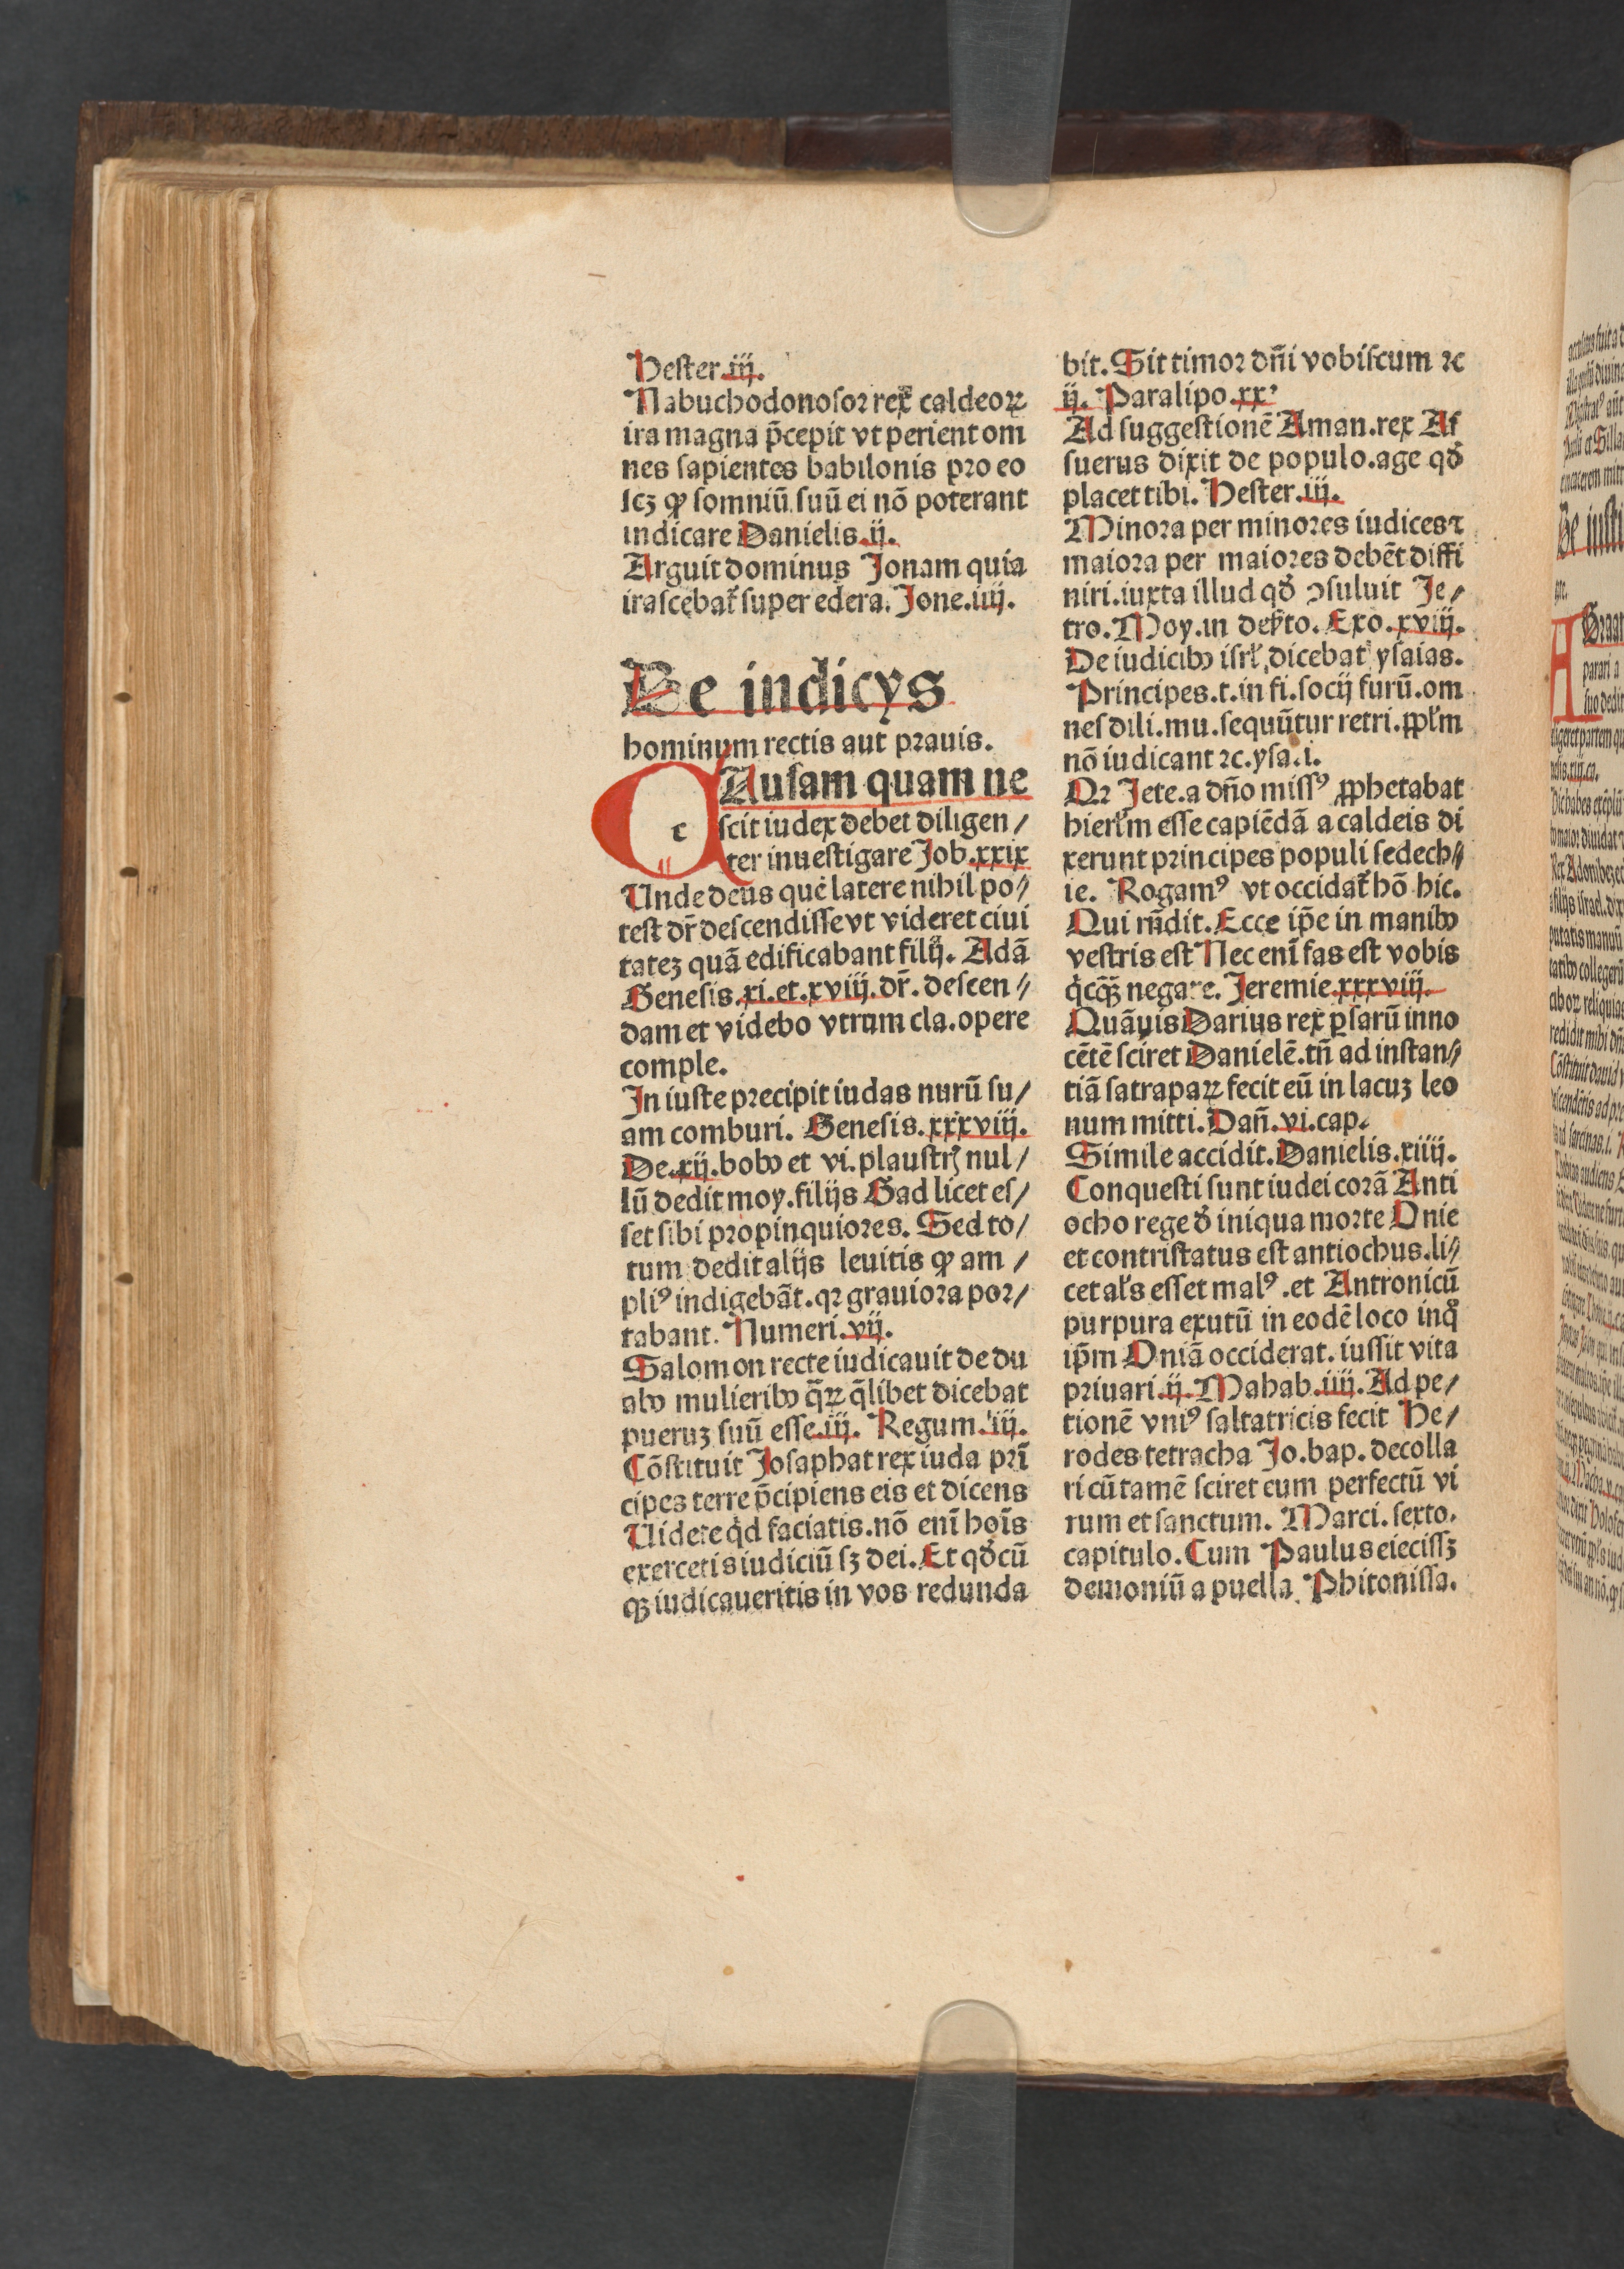 Hester.iij.
Nabuchodonosor rex caldeoꝝ
ira magna p̄cepit vt perient om
nes sapientes babilonis pro eo
scꝫ ꝙ somniū suū ei nō poterant
indicare Danielis.ij.
Arguit dominus Jonam quia
irascebat᷑ super edera. Jone.iiij.
De indicys
hominum rectis aut prauis.
c Ausam quam ne
scit iudex debet diligen/
ter inuestigare Job.xxix
Unde deus quē latere nihil po//
test dr̄ descendisse vt videret ciui
tateꝫ quā edificabant filij. Adā
Genesis.xi.et.xviij.dr̄. descen//
dam et videbo vtrum cla.opere
comple.
In iuste precipit iudas nurū su/
am comburi. Genesis.xxxviij.
De.xij.bobꝰ et vi.plaustrꝭ nul/
lū dedit moy.filijs Gad licet es/
set sibi propinquiores. Sed to/
tum dedit alijs leuitis ꝙ am /
pliꝰ indigebāt.qꝛ grauiora por/
tabant. Numeri.vij.
Salomon recte iudicauit de du
abꝰ mulieribꝰ q̄ꝝ q̄libet dicebat
pueruꝫ suū esse.iij. Regum.iij.
Cōstituit Josaphat rex iuda pri̅
cipes terre p̄cipiens eis et dicens
Uidete qͥd faciatis.nō eni̅ hoi̅s
exercetis iudiciū sꝫ dei. Et qđcū
qꝫ iudicaueritis in vos redunda
bit. Sit timor dn̄i vobiscum ⁊c
ij. Paralipo.xxꝰ
Ad suggestionē Aman.rex As
suerus dixit de populo.age qđ
placet tibi. Hester.iij.
Minora per minores iudices ⁊
maiora per maiores debēt diffi
niri.iuxta illud qđ ꝯsuluit Je/
tro. Moy.in dep̄to. Exo.xviij.
De iudicibꝰ isrl̓,dicebat ysaias.
Principes.t.in fi.socij furū.om
nes dili.mu.sequūtur retri.ꝓpl̓m
nō iudicant ⁊c.ysa.i.
Qꝛ Jete.a dn̄o missꝰ ꝓphetabat
hierl̓m esse capiēdā a caldeis di
xerunt principes populi sedech//
ie. Rogamꝰ vt occidat᷑ hō hic.
Qui rn̄dit. Ecce ip̄e in manibꝰ
vestris est Nec eni̅ fas est vobis
qͥcꝗ̄ negare. Jeremie.xxxviij.
Quāuis Darius rex ꝑsarū inno
cētē sciret Danielē.tn̄ ad instan//
tiā satrapaꝝ fecit eū in lacuꝫ leo
num mitti. Dan̄.vi.cap.
Simile accidit. Danielis.xiiij.
Conquesti sunt iudei corā Anti
ocho rege đ iniqua morte Onie
et contristatus est antiochus.li//
cet al̓s esset malꝰ.et Antronicū
purpura exutū in eodē loco inqͦ
ip̄m Oniā occiderat.iussit vita
priuari.ij. Mahab.iiij. Ad pe/
tionē vniꝰ saltatricis fecit He/
rodes tetracha Jo.bap.decolla
ri cū tamē sciret eum perfectū vi
rum et sanctum. Marci.sexto.
capitulo. Cum Paulus eiecissꝫ
demoniū a puella Phitonissa.